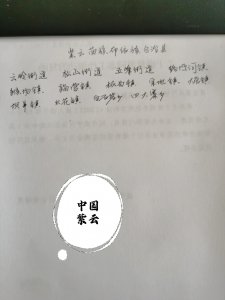 紫云苗族布依族自治县
云岭街道 松山街道 五峰街道 格凸河镇
猴场镇 猫营镇 板当镇 宗地镇 大营镇
坝羊镇 火花镇 白石岩乡 四大寨乡
中国
紫云